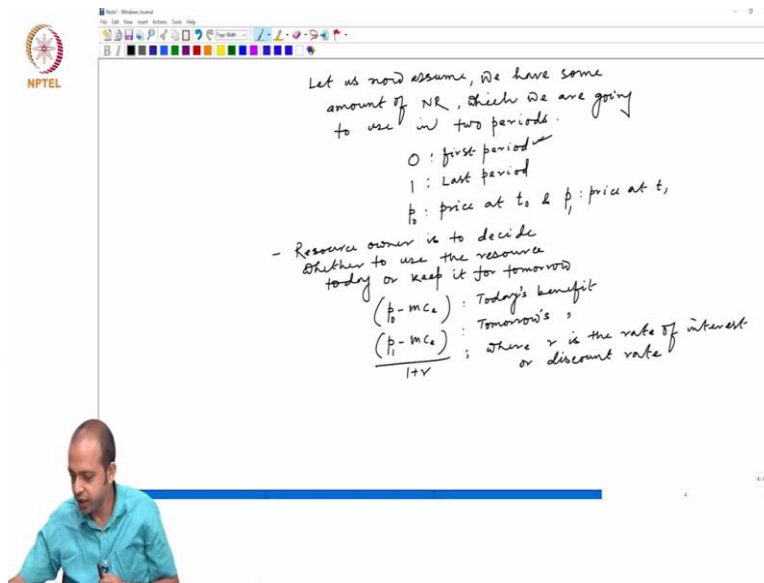 Note1 - Windows Journal
File Edit View Insert Actions Tools Help
Page Width
NPTEL
Let us now assume, we have some
amount of NR, which we are going
to use in two periods.
0 : first period
1 : Last period
p₀ : price at t₀ & p₁ : price at t₁
- Resource owner is to decide
whether to use the resource
today or keep it for tomorrow
(p₀ - mcₑ) : Today's benefit
(p₁ - mcₑ) : Tomorrow's "
1+r ; where r is the rate of interest
or discount rate